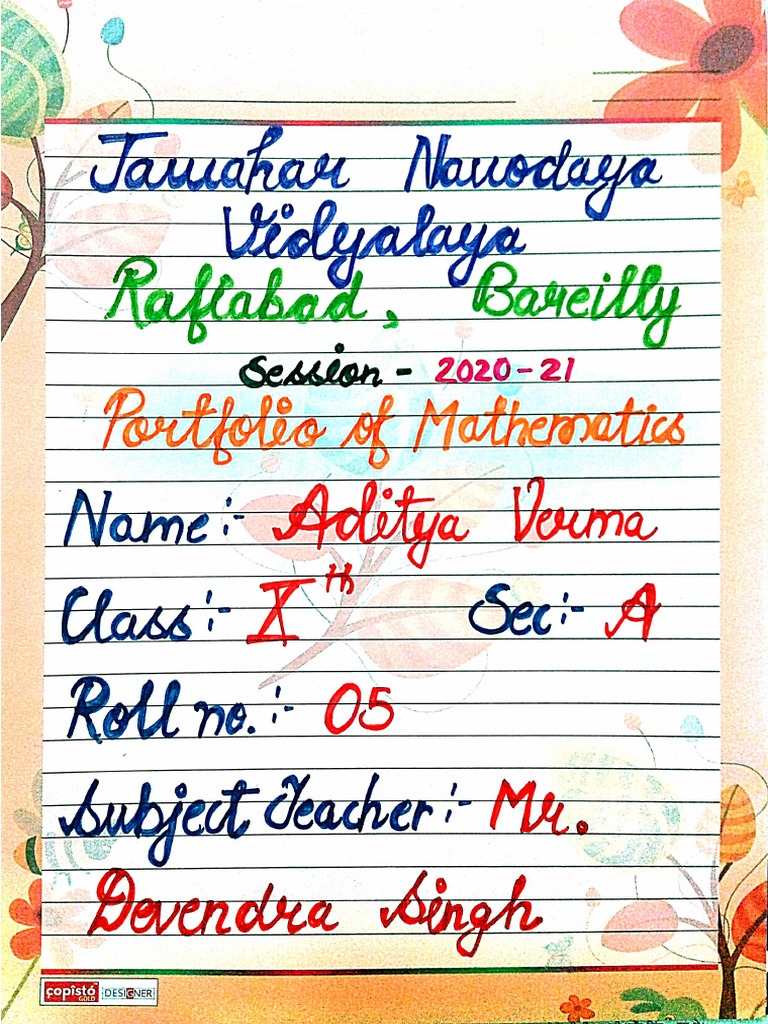 Jawahar Navodaya
Vidyalaya
Rafiabad, Bareilly
Session - 2020-21
Portfolio of Mathematics
Name:- Aditya Verma
Class:- Xth Sec:- A
Roll no.:- 05
Subject Teacher:- Mr.
Devendra Singh
copisto GOLD DESIGNER